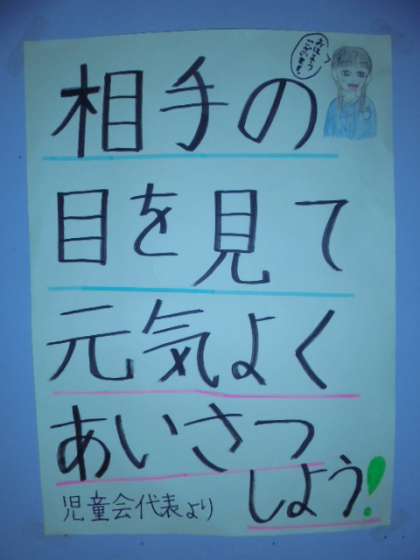 おはようございます。
相手の
目を見て
元気よく
あいさつ
しよう!
児童会代表より